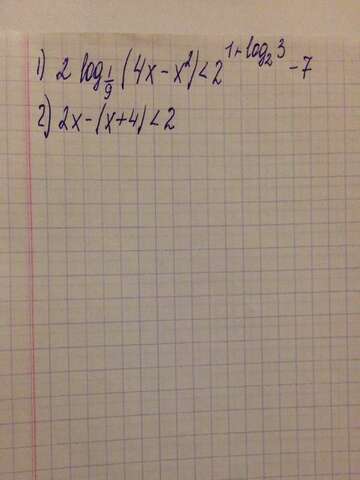 1) 2 log_{1/9} (4x - x²) < 2^{1+log₂3} - 7
2) 2x - (x+4) < 2